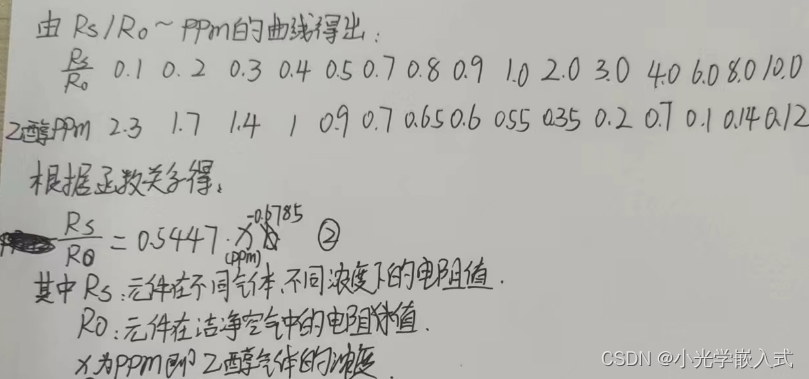 由 Rs/Ro~PPm的曲线得出:
Rs/Ro 0.1 0.2 0.3 0.4 0.5 0.7 0.8 0.9 1.0 2.0 3.0 4.0 6.0 8.0 10.0
乙醇PPm 2.3 1.7 1.4 1 0.9 0.7 0.65 0.6 0.55 0.35 0.2 0.7 0.1 0.14 0.12
根据函数关系得:
Rs/R0 = 0.5447·x^-0.6785 (ppm) ②
其中Rs:元件在不同气体、不同浓度下的电阻值.
R0:元件在洁净空气中的电阻值.
x为PPm即乙醇气体的浓度
CSDN @小光学嵌入式